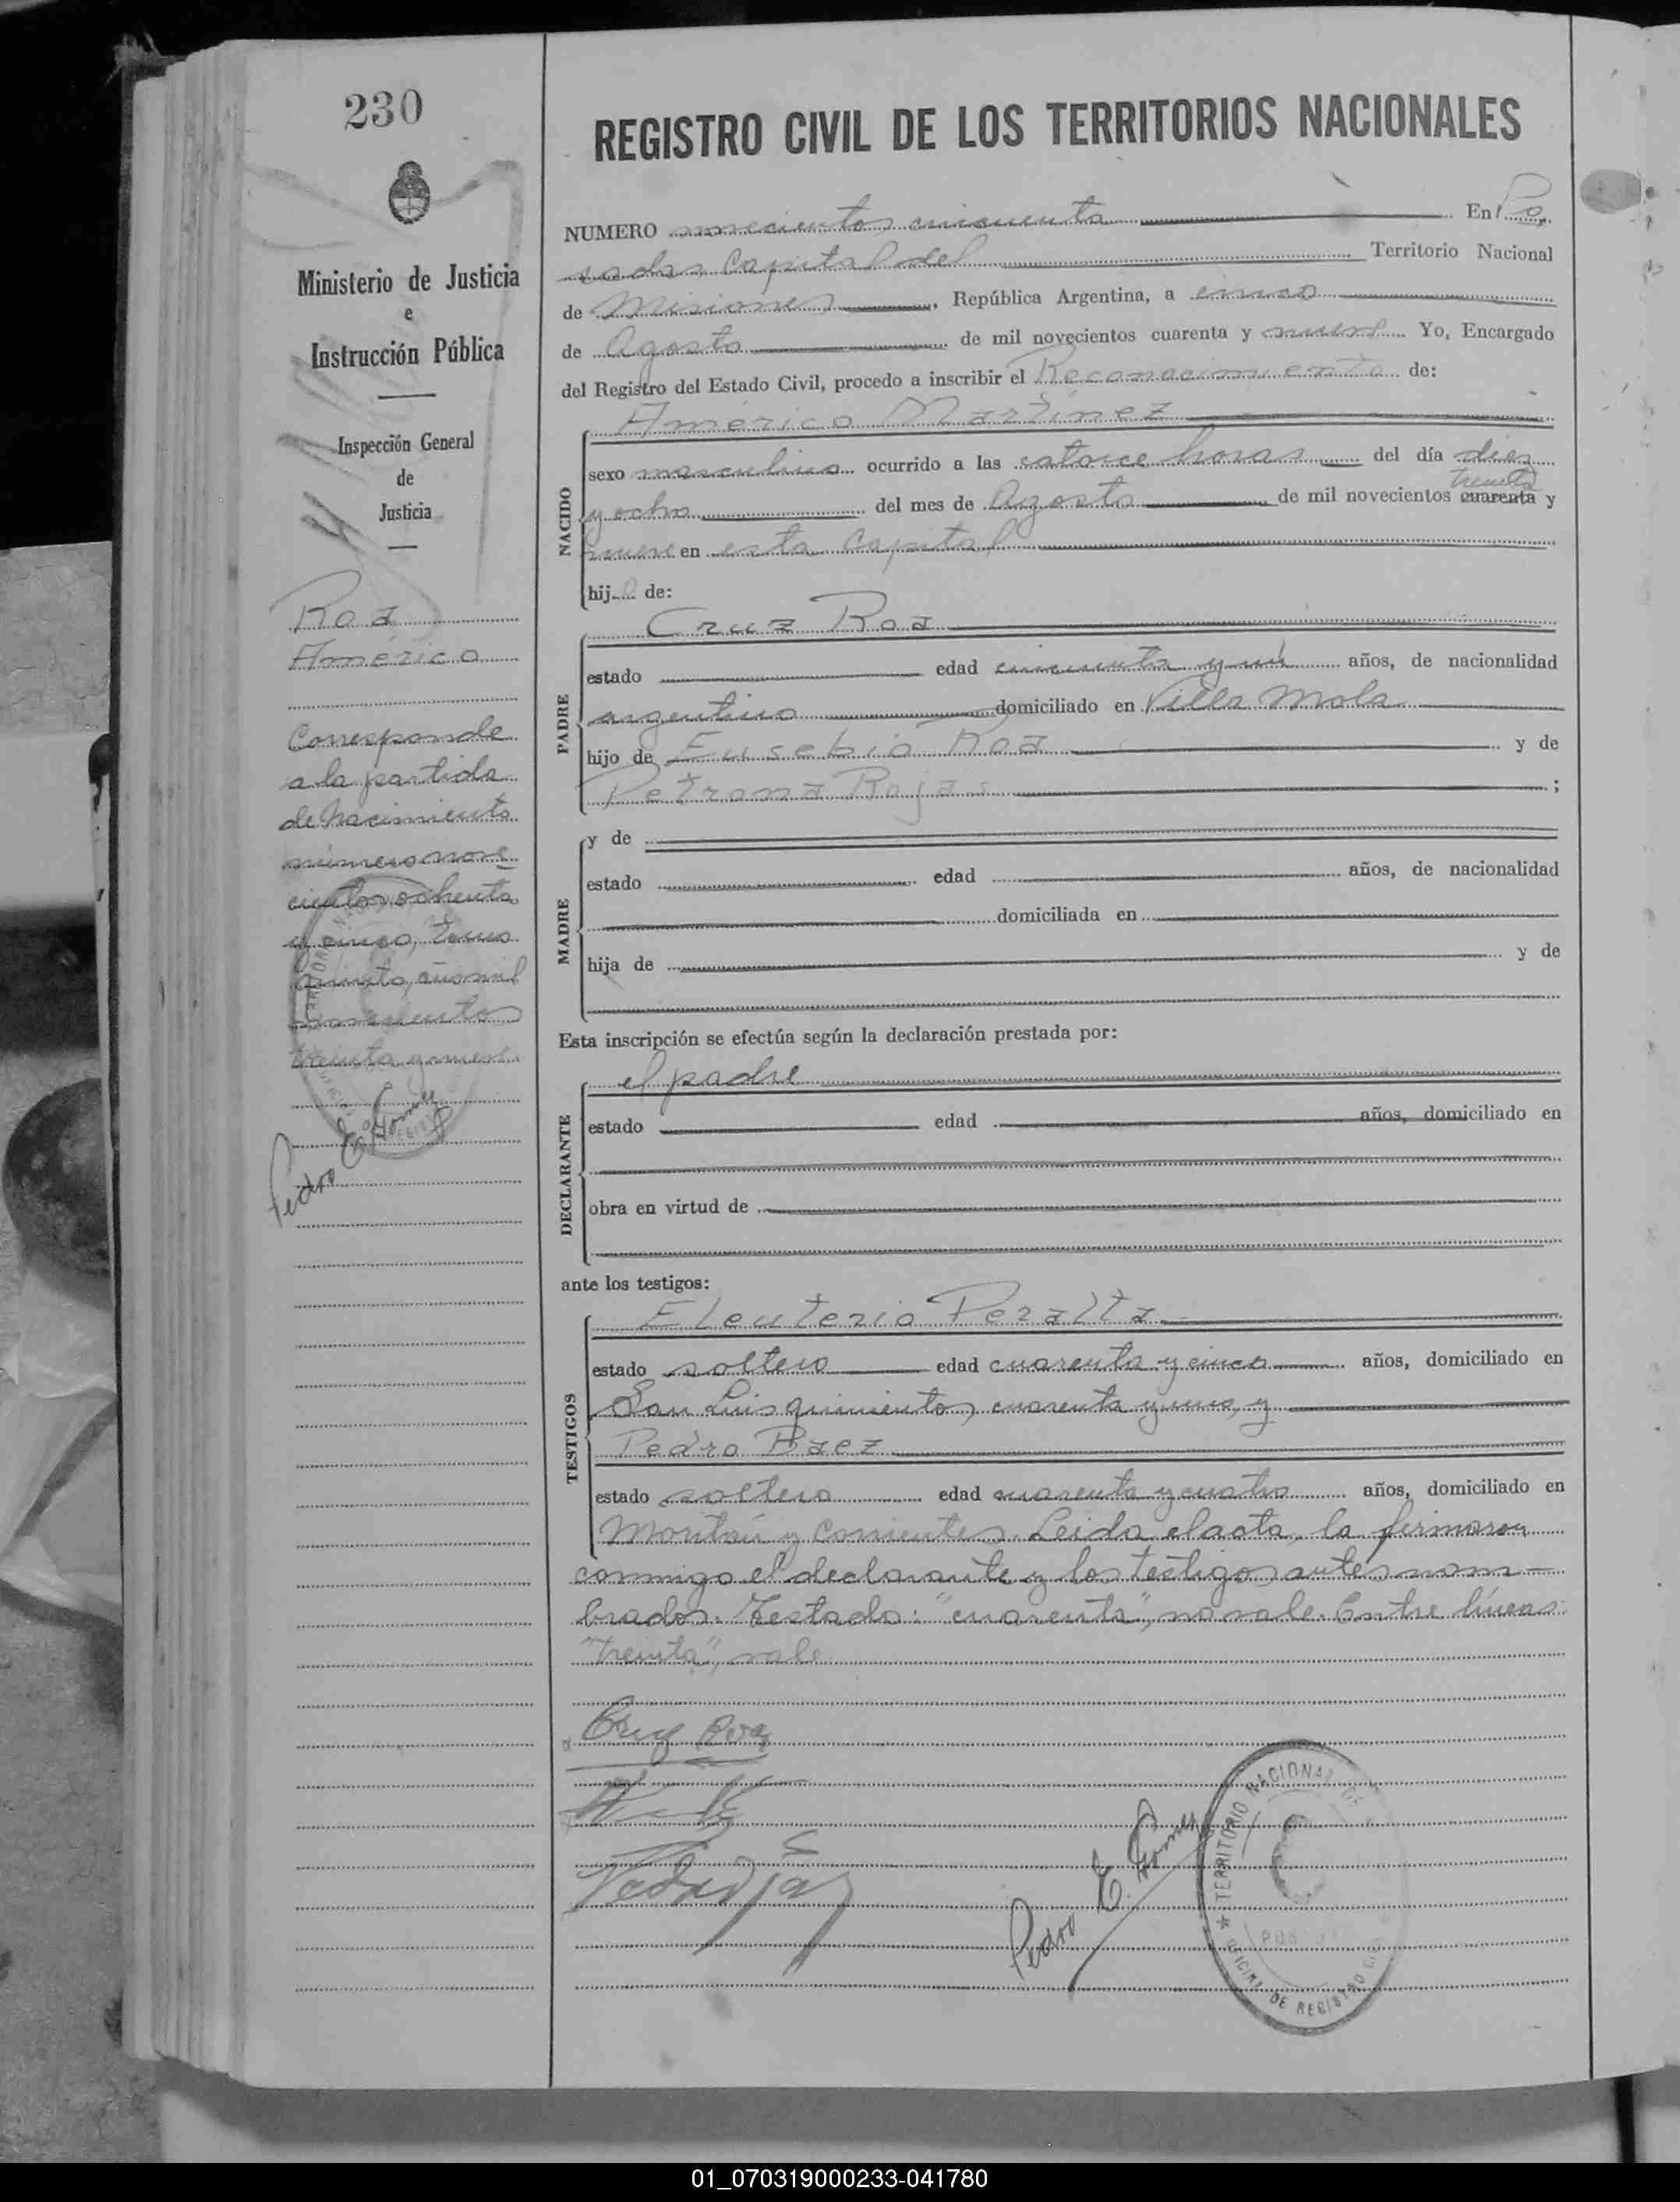 230
Ministerio de Justicia
e
Instrucción Pública
Inspección General
de
Justicia
Roa
Américo
Corresponde
a la partida
de nacimiento
número nove
cientos ochenta
y cinco, tomo
quinto, año mil
novecientos
treinta y nueve.
Pedro E. Gomez
REGISTRO CIVIL DE LOS TERRITORIOS NACIONALES
NUMERO novecientos cincuenta En Po,
sadas Capital del Territorio Nacional
de Misiones, República Argentina, a cinco
de Agosto de mil novecientos cuarenta y nueve Yo, Encargado
del Registro del Estado Civil, procedo a inscribir el Reconocimiento de:
Américo Martínez
NACIDO
sexo masculino ocurrido a las catorce horas del día diez
treinta
y ocho del mes de Agosto de mil novecientos cuarenta y
nueve en esta Capital
hijo de:
Cruz Roa
PADRE
estado edad cincuenta y un años, de nacionalidad
argentino domiciliado en Villa Mola
hijo de Eusebio Roa y de
Petrona Rojas ;
MADRE
y de
estado edad años, de nacionalidad
domiciliada en
hija de y de
Esta inscripción se efectúa según la declaración prestada por:
el padre
DECLARANTE
estado edad años, domiciliado en
obra en virtud de
ante los testigos:
Eleuterio Peralta
TESTIGOS
estado soltero edad cuarenta y cinco años, domiciliado en
San Luis quinientos cuarenta y uno, y
Pedro Báez
estado soltero edad cuarenta y cuatro años, domiciliado en
y Corrientes. Leida el acta, la firmaron
conmigo el declarante y los testigos antes nom-
brados. Testado: "cuarenta", no vale. Entre líneas:
"treinta", vale.
Cruz Roa
Pedro E. Gomez
TERRITORIO NACIONAL DE
OFICINA DE REGISTRO
01_070319000233-041780